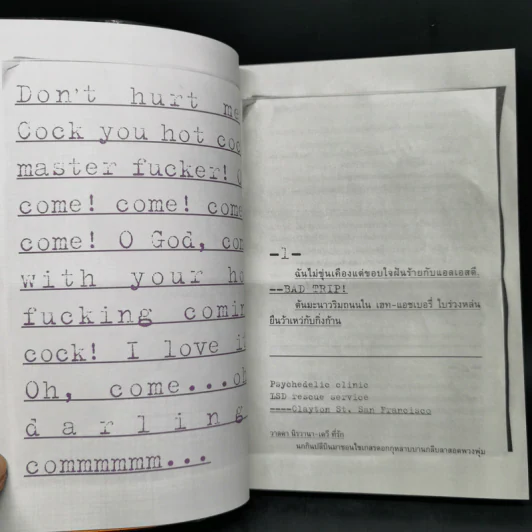 Don't hurt me
Cock you hot coc
master fucker!
come! come! come
come! O God, com
with your ho
fucking comin
cock! I love it
Oh, come...oh
darling
commmmmm...
—1—
ฉันไม่ขุ่นเคืองแต่ขอบใจฝันร้ายกับแอลเอสดี
--BAD TRIP!
ต้นมะนาวริมถนนใน เฮท-แอชเบอรี่ ใบร่วงหล่น
ยืนว้าเหว่กับกิ่งก้าน
Psychedelic clinic
LSD rescue service
----Clayton St. San Francisco
วาดดา นิรวานา-เดวี ที่รัก